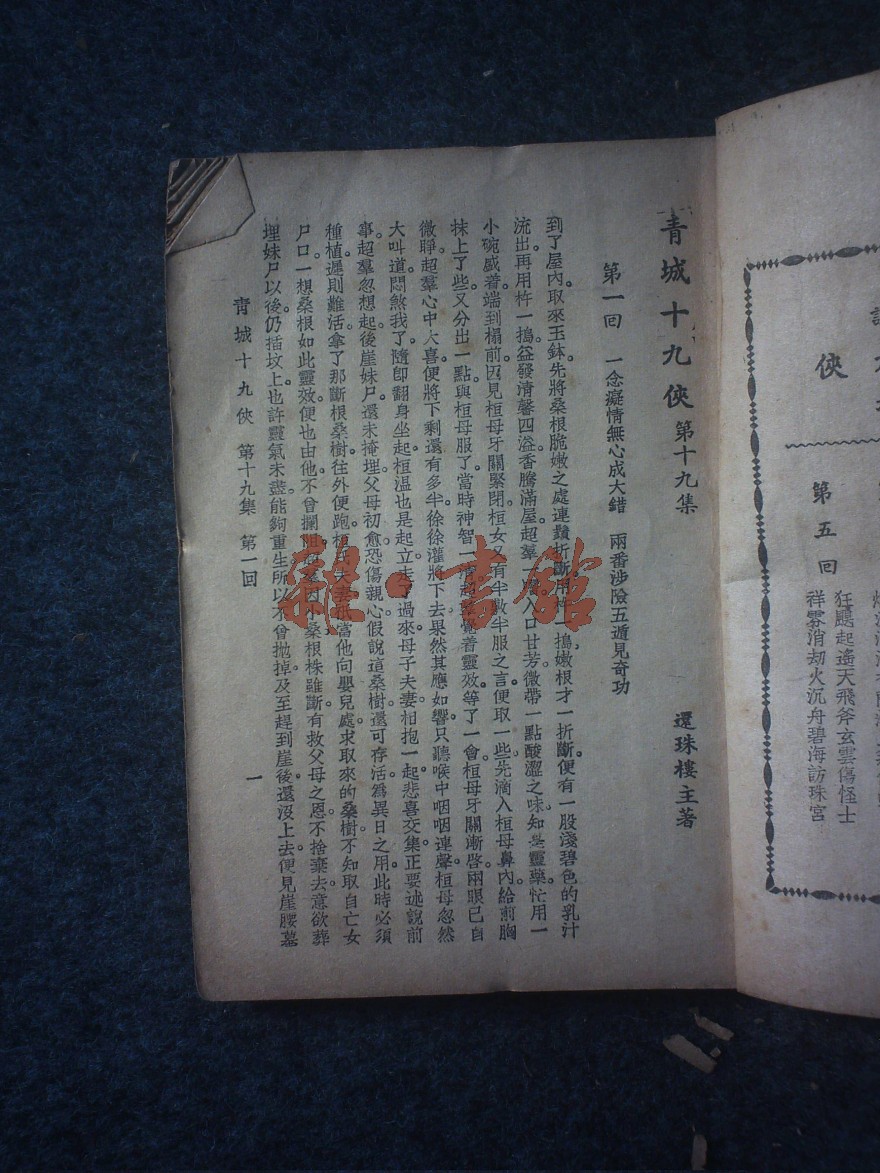 俠
第五回
狂飇起遙天飛斧玄雲傷怪士
祥雰消劫火沉舟碧海訪珠宮
青城十九俠 第十九集
還珠樓主著
第一回 一念癡情無心成大錯 兩番涉險五遁見奇功
到了屋內。取來玉鉢。先將桑根脆嫩之處連鬚折斷用杵一搗。嫩根才一折斷。便有一股淺碧色的乳汁
流出再用杵一搗。益發清馨四溢。香騰滿屋。超羣一嚐入口甘芳。微帶一點酸澀之味。知是靈藥。忙用一
小碗盛着。端到榻前。因見桓母牙關緊閉。桓女又有半敷半服之言。便取一些先滴入桓母鼻內。給前胸
抹上了些。又分出一點與桓母服了。當時神智一清。超羣覺着靈效。等了一會。桓母牙關漸啓。兩眼已自
微睜。超羣心中大喜。便將下剩還有多半。徐徐灌將下去。果然其應如響。只聽喉中咽咽連聲。桓母忽然
大叫道。悶煞我了。隨卽翻身坐起。桓温也是起立走了過來。母子夫妻相抱一起。悲喜交集。正要述說前
事。超羣忽想起後崖妹尸。還未掩埋。父母初愈。恐傷親心。假說道。桑樹還可存活。爲異日之用。此時必須
種植。遲則難活。拿了那斷根桑樹。往外便跑。桓氏夫妻祇當他向嬰兒處求取來的桑樹。不知取自亡女
尸口。一想桑根如此靈效。便也由他。不曾攔阻。超羣因小桑根株雖斷。有救父母之恩。不捨棄去。意欲葬
埋妹尸以後。仍插坟上。也許靈氣未盡。能夠重生。所以不曾拋掉。及至趕到崖後。還沒上去。便見崖腰墓
青城十九俠 第十九集 第一回
一
雜·書館